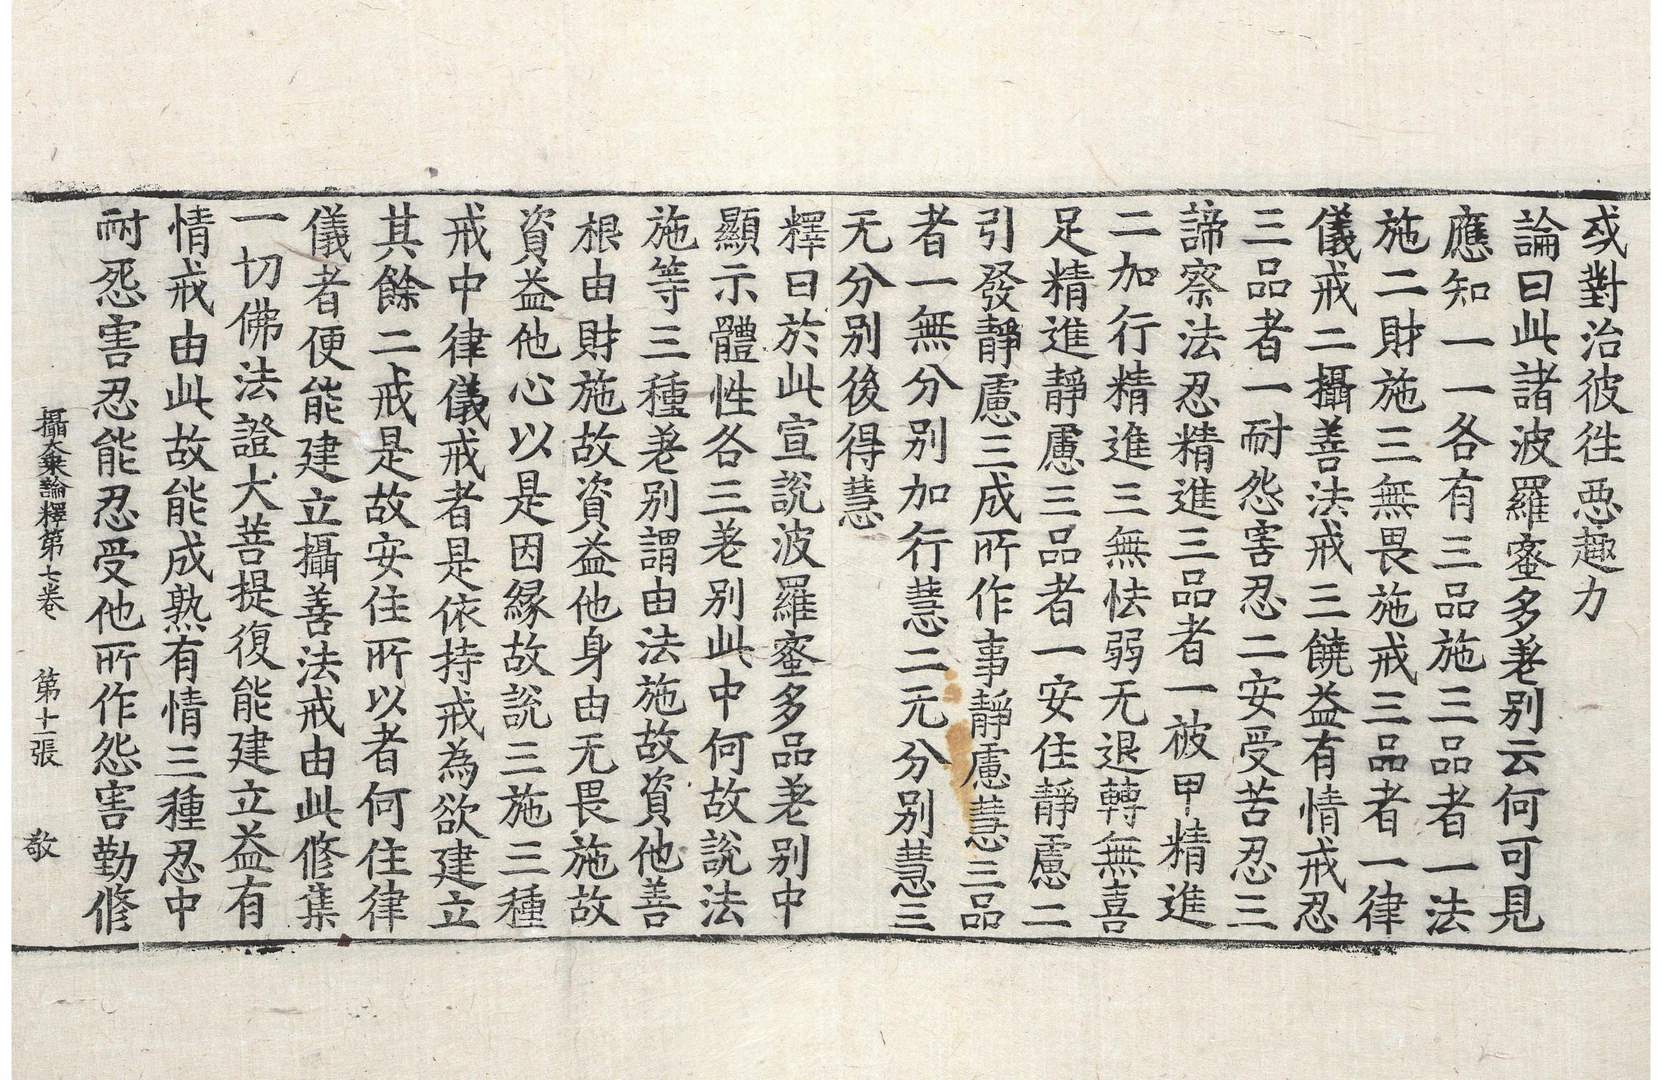 或對治彼徃惡趣力
論曰此諸波羅蜜多差别云何可見
應知一一各有三品施三品者一法
施二財施三無畏施戒三品者一律
儀戒二攝善法戒三饒益有情戒忍
三品者一耐怨害忍二安受苦忍三
諦察法忍精進三品者一被甲精進
二加行精進三無怯弱无退轉無喜
足精進靜慮三品者一安住靜慮二
引發靜慮三成所作事靜慮慧三品
者一無分别加行慧二无分别慧三
无分别後得慧
釋曰於此宣說波羅蜜多品差别中
顯示體性各三差别此中何故說法
施等三種差别謂由法施故資他善
根由財施故資益他身由无畏施故
資益他心以是因縁故說三施三種
戒中律儀戒者是依持戒為欲建立
其餘二戒是故安住所以者何住律
儀者便能建立攝善法戒由此修集
一切佛法證大菩提復能建立益有
情戒由此故能成熟有情三種忍中
耐怨害忍能忍受他所作怨害勤修
攝大乗論釋第七卷 第十二張 敬